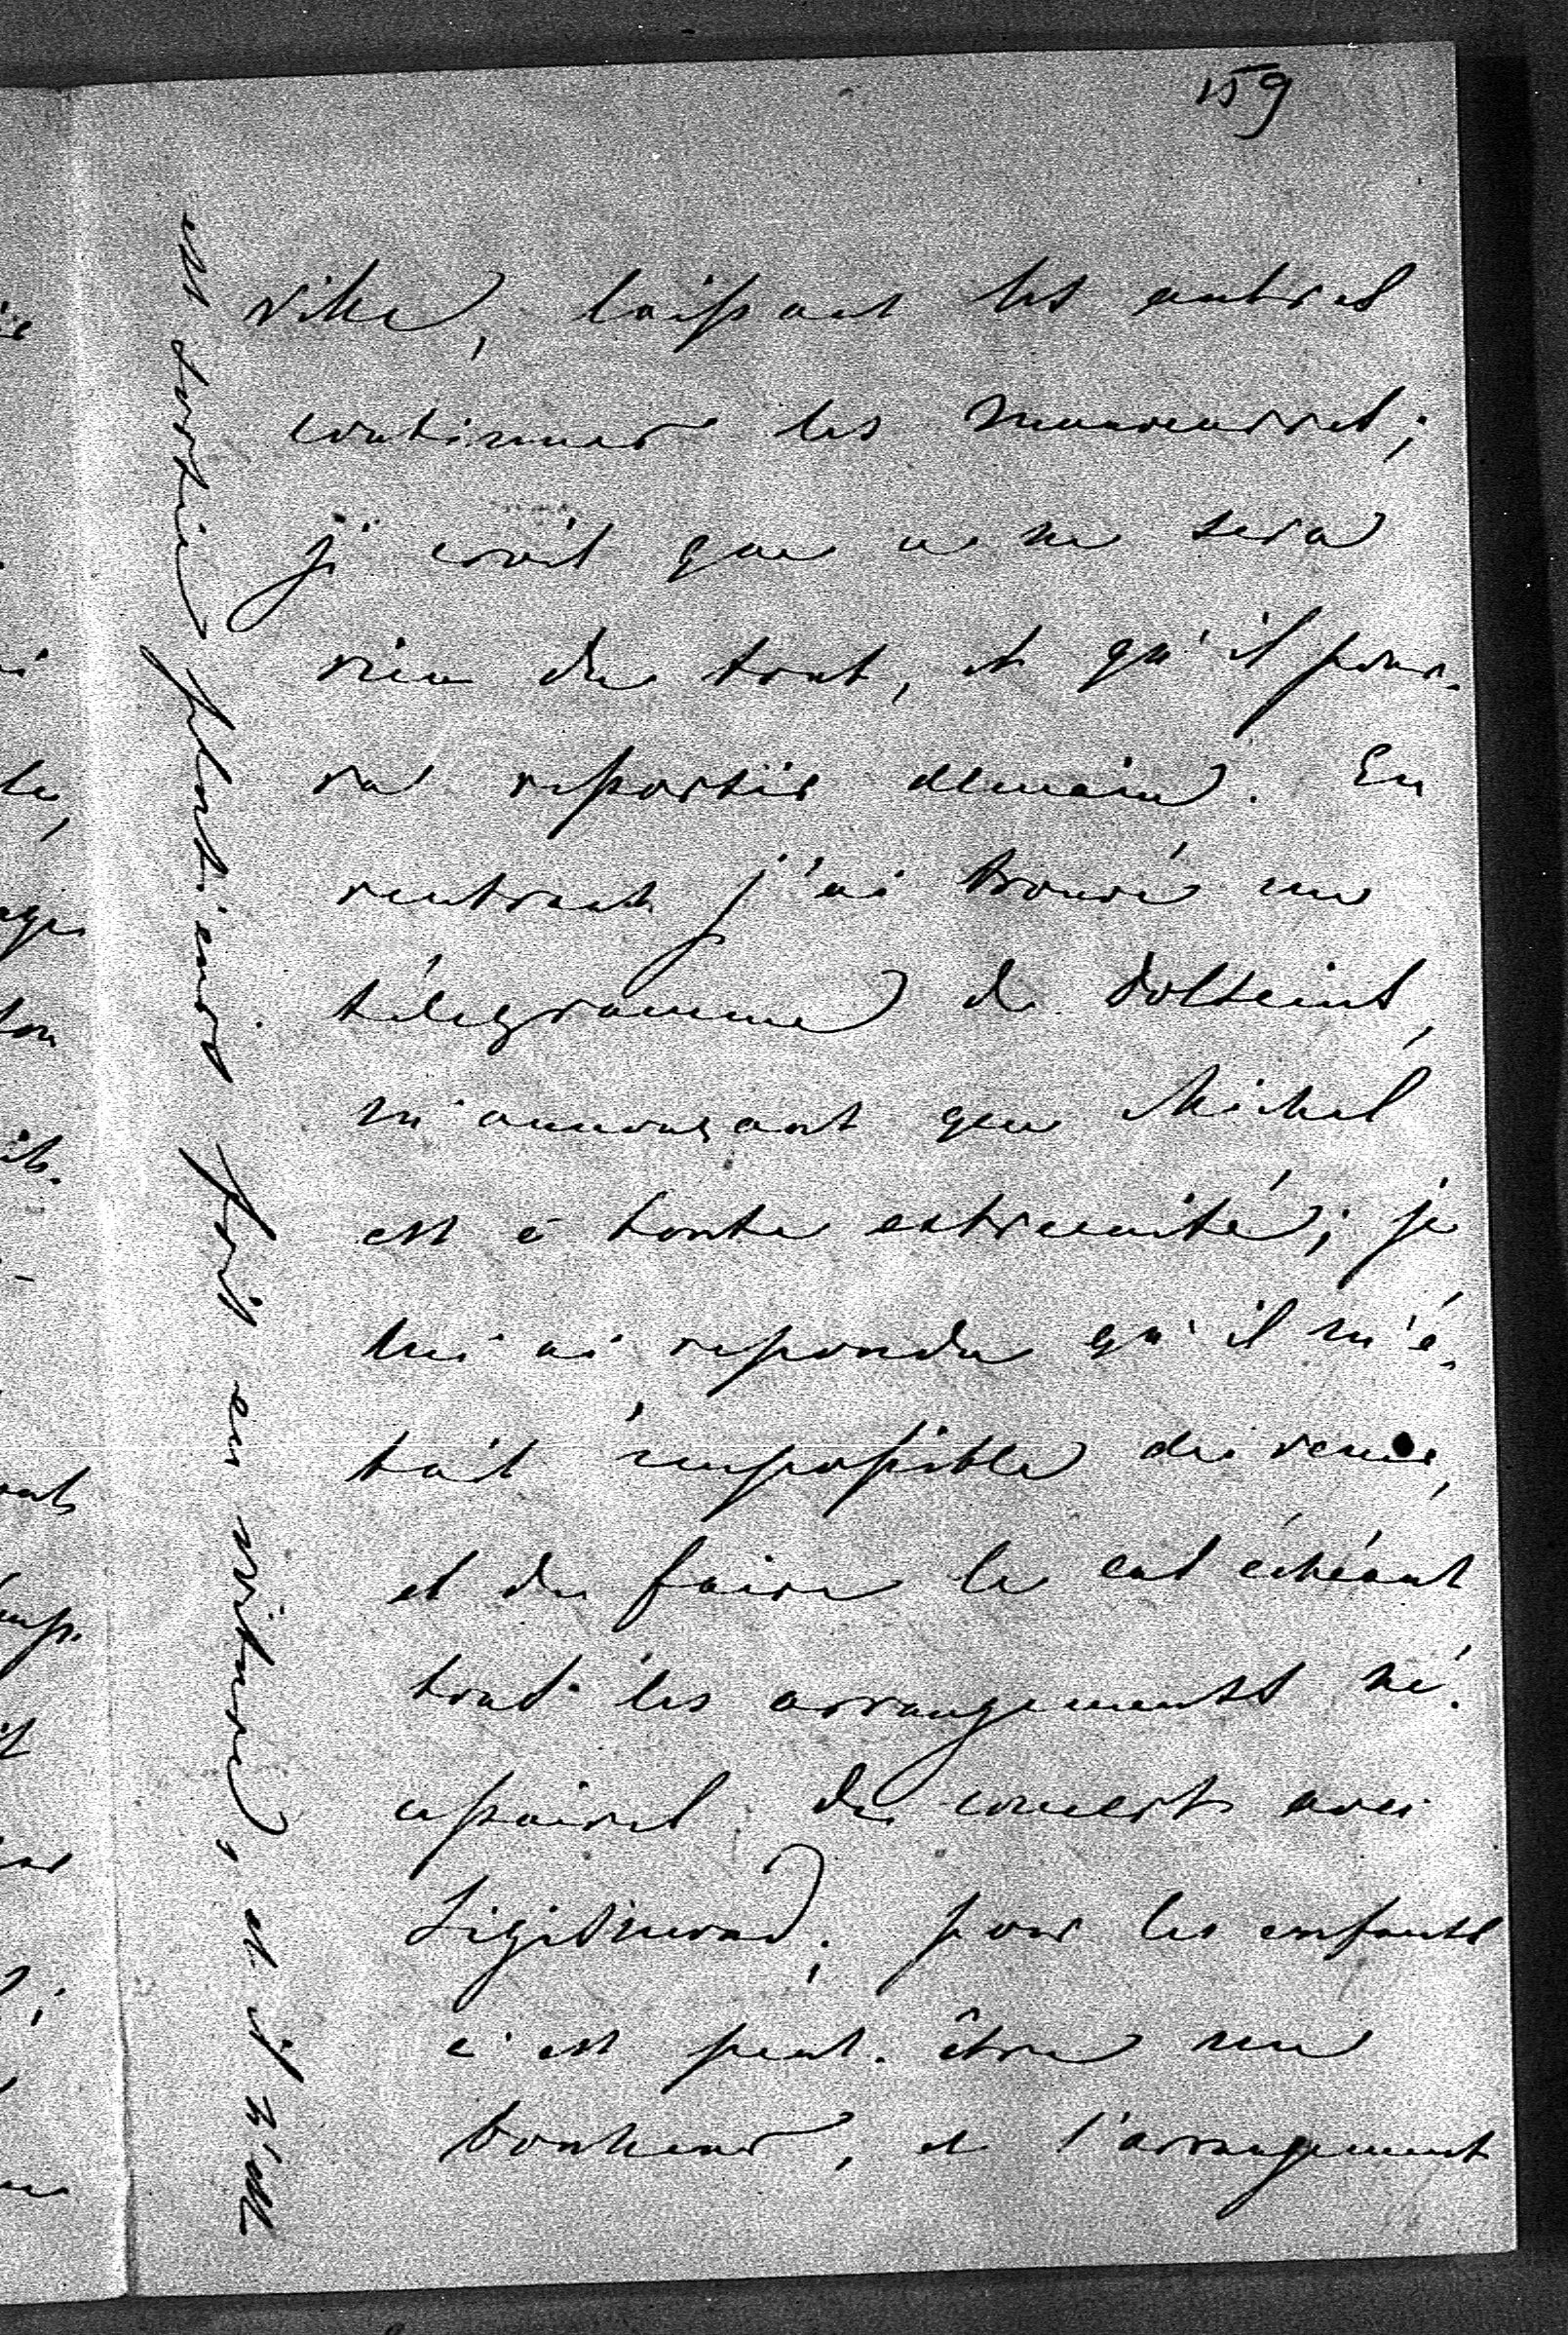 159
ville, laissant les autres
continuer les manœuvres;
je crois que ce ne sera
rien du tout, et qu'il pour-
ra repartir demain. En
rentrant j'ai trouvé un
télégramme de
m'annonçant que Michel
est à toute extremité; je
lui ai repondu qu'il m'é-
tait impossible de venir,
et de faire le cas échéant
tous les arrangements né-
cessaires de concert avec
Sigismond; pour les enfants
c'est peut-être un
bonheur, et l'arrangement
est sorti plusieurs fois en voiture, et il n'est